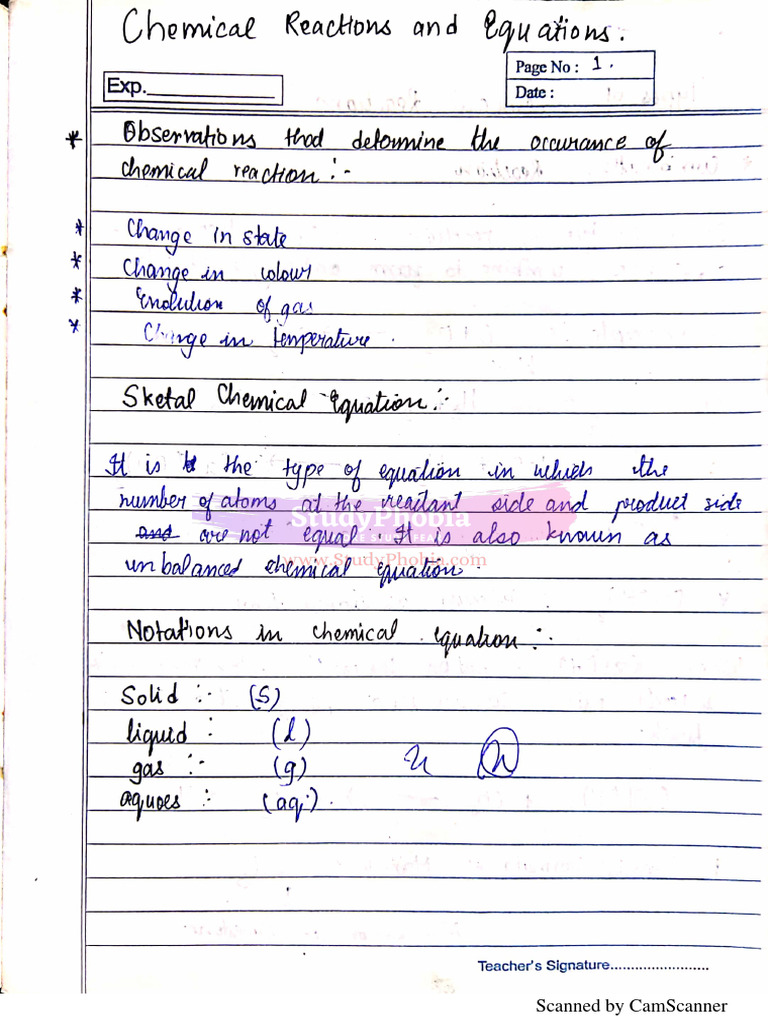 Chemical Reactions and Equations.
Page No : 1.
Exp.
Date :
* Observations that determine the occurance of
chemical reaction :-
* Change in state
* Change in colour
* Evolution of gas
* Change in temperature.
Sketal Chemical Equation :-
It is the type of equation in which the
number of atoms at the reactant side and product side
and are not equal. It is also known as
StudyPhobia
www.StudyPhobia.com
unbalanced chemical equation.
Notations in chemical equation :-
Solid :- (S)
liquid : (l)
gas :- (g)
aquoes :- (aq.).
Teacher's Signature........................
Scanned by CamScanner